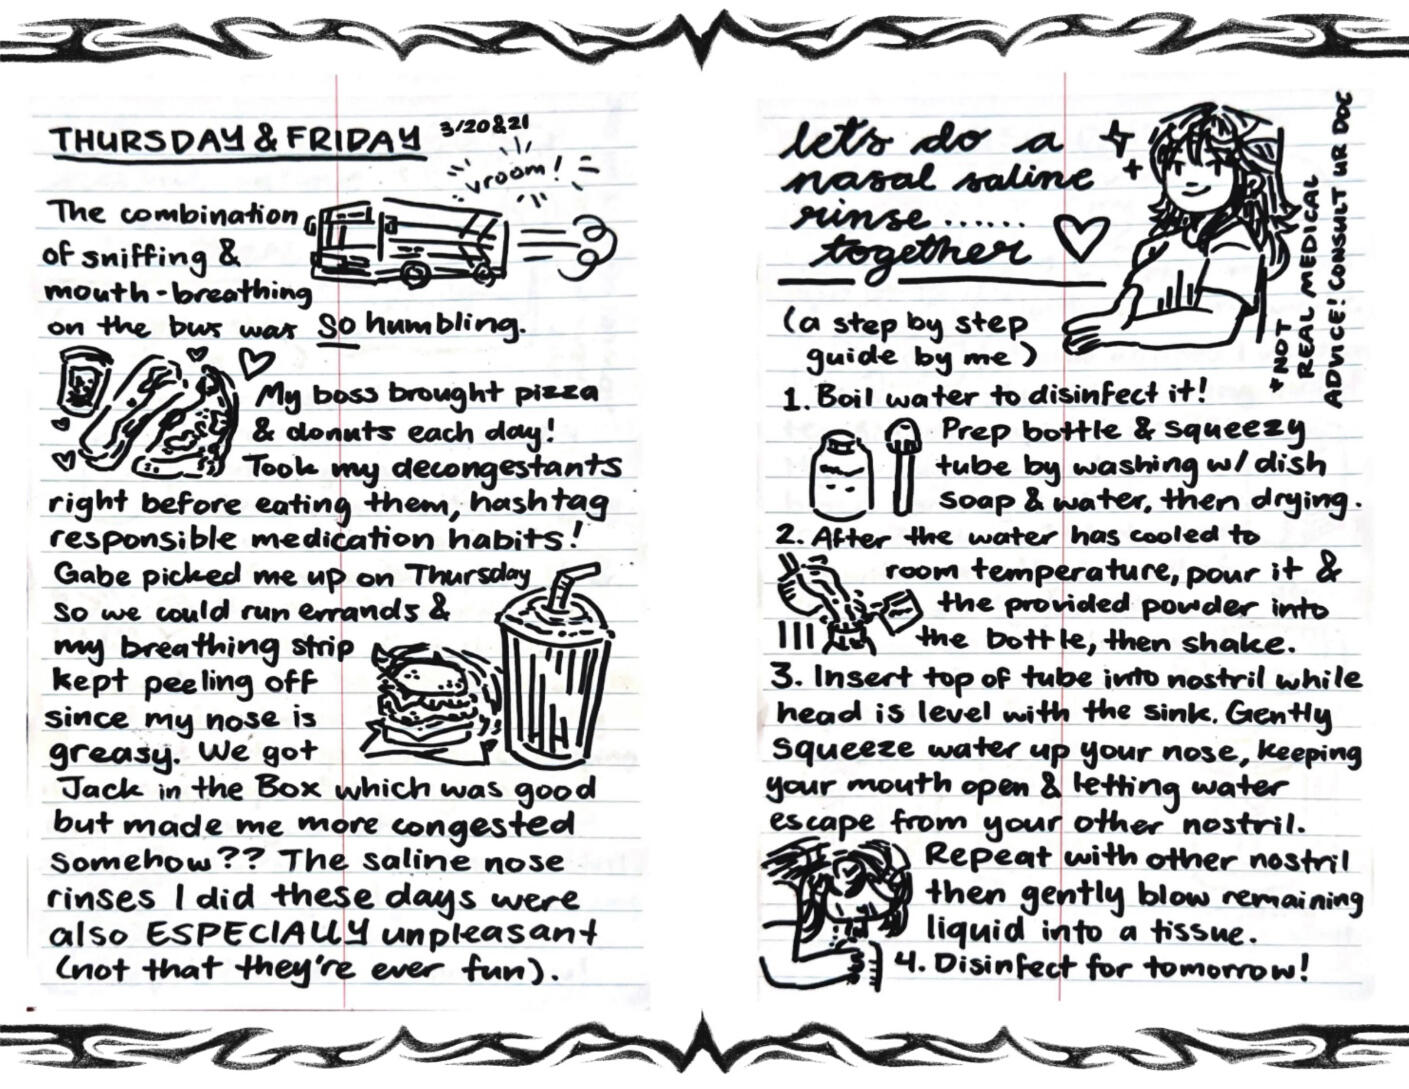 THURSDAY & FRIDAY 3/20&21
vroom!
The combination
of sniffing &
mouth-breathing
on the bus was so humbling.
My boss brought pizza
& donuts each day!
Took my decongestants
right before eating them, hashtag
responsible medication habits!
Gabe picked me up on Thursday
so we could run errands &
my breathing strip
kept peeling off
since my nose is
greasy. We got
Jack in the Box which was good
but made me more congested
somehow?? The saline nose
rinses I did these days were
also ESPECIALLY unpleasant
(not that they're ever fun).
lets do a
nasal saline
rinse ......
together
*NOT
REAL MEDICAL
ADVICE! CONSULT UR DOC
(a step by step
guide by me)
1. Boil water to disinfect it!
Prep bottle & squeezy
tube by washing w/ dish
soap & water, then drying.
2. After the water has cooled to
room temperature, pour it &
the provided powder into
the bottle, then shake.
3. Insert top of tube into nostril while
head is level with the sink. Gently
squeeze water up your nose, keeping
your mouth open & letting water
escape from your other nostril.
Repeat with other nostril
then gently blow remaining
liquid into a tissue.
4. Disinfect for tomorrow!